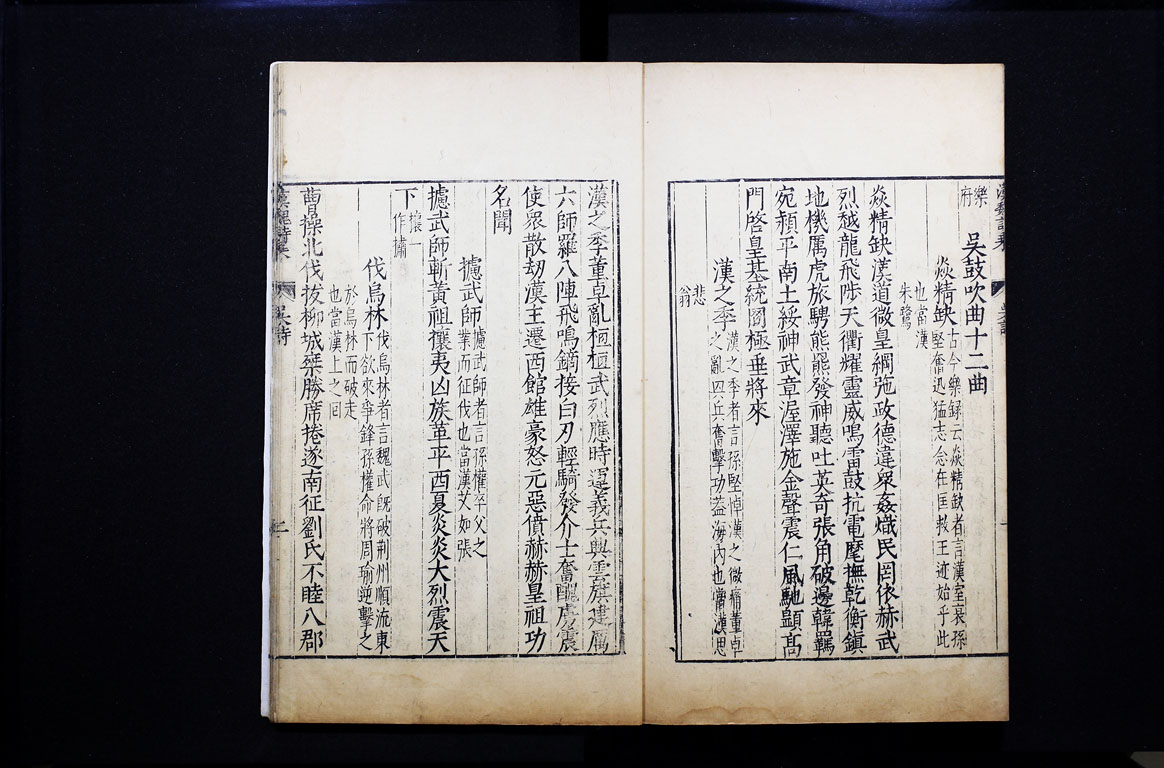 樂府
吳鼓吹曲十二曲
炎精缺古今樂録云炎精缺者言漢室衰孫
堅奮迅猛志念在匡救王迹始乎此
也當漢
朱鷺
炎精缺漢道微皇綱弛政德違衆姦熾民罔依赫武
烈越龍飛陟天衢耀靈威鳴雷鼓抗電麾撫乾衡鎮
地機厲虎旅騁熊羆發神聽吐英奇張角破邊韓羈
宛潁平南土綏神武章渥澤施金聲震仁風馳顯高
門啓皇基統罔極垂將來
漢之季漢之季者言孫堅悼漢之微痛董卓
之亂興兵奮擊功蓋海內也當漢思
悲
翁
漢之季董卓亂桓桓武烈應時運義兵興雲旗建厲
六師羅八陣飛鳴鏑接白刃輕騎發介士奮醜虜震
使衆散劫漢主遷西館雄豪怒元惡僨赫赫皇祖功
名聞
攄武師攄武師者言孫權卒父之
業而征伐也當漢艾如張
攄武師斬黃祖攘夷凶族革平西夏炎炎大烈震天
下攘一作㩋
伐烏林伐烏林者言魏武既破荆州順流東
下欲來爭鋒孫權命將周瑜逆擊之
於烏林而破走
也當漢上之回
曹操北伐拔柳城乘勝席捲遂南征劉氏不睦八郡
漢魏詩集
吳詩